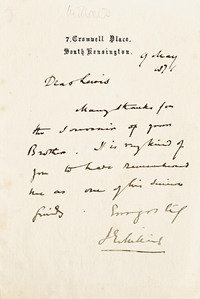 Millais
7, Cromwell Place,
South Kensington.
9 May
Dear Lewis
Many thanks for
the souvenir of your
Brother. It is very kind of
you to have remembered
me as one of his sincere
friends.
JEMillais